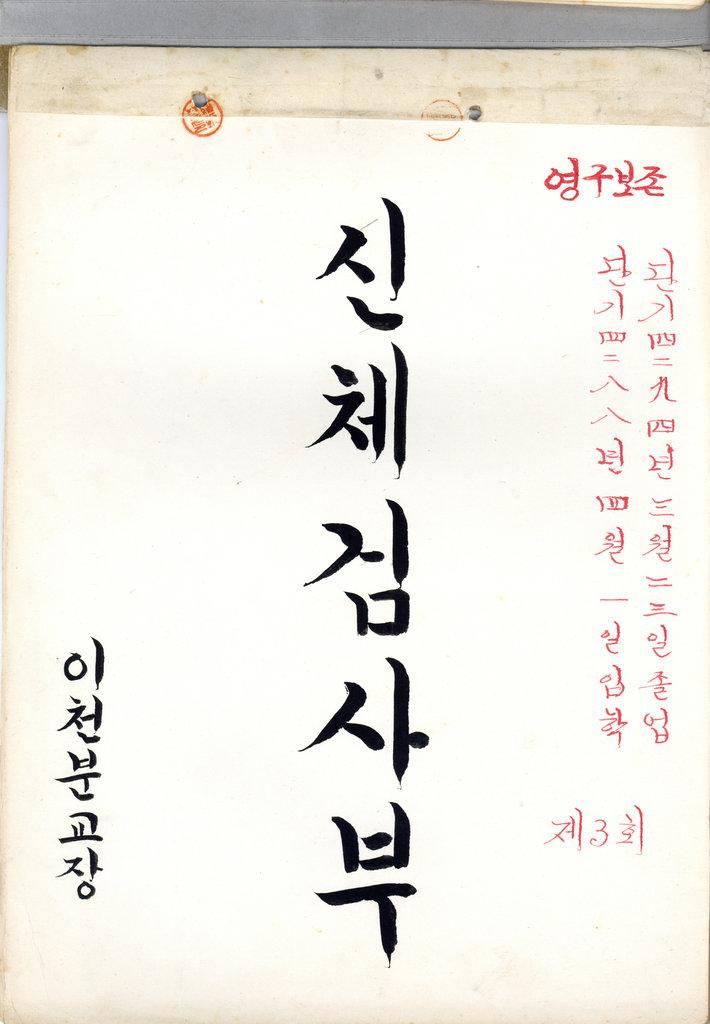 영구보존
단기四二九四년 三월 二三일 졸업
단기四二八八년 四월 一일 입학
제3회
신체검사부
이천분교장